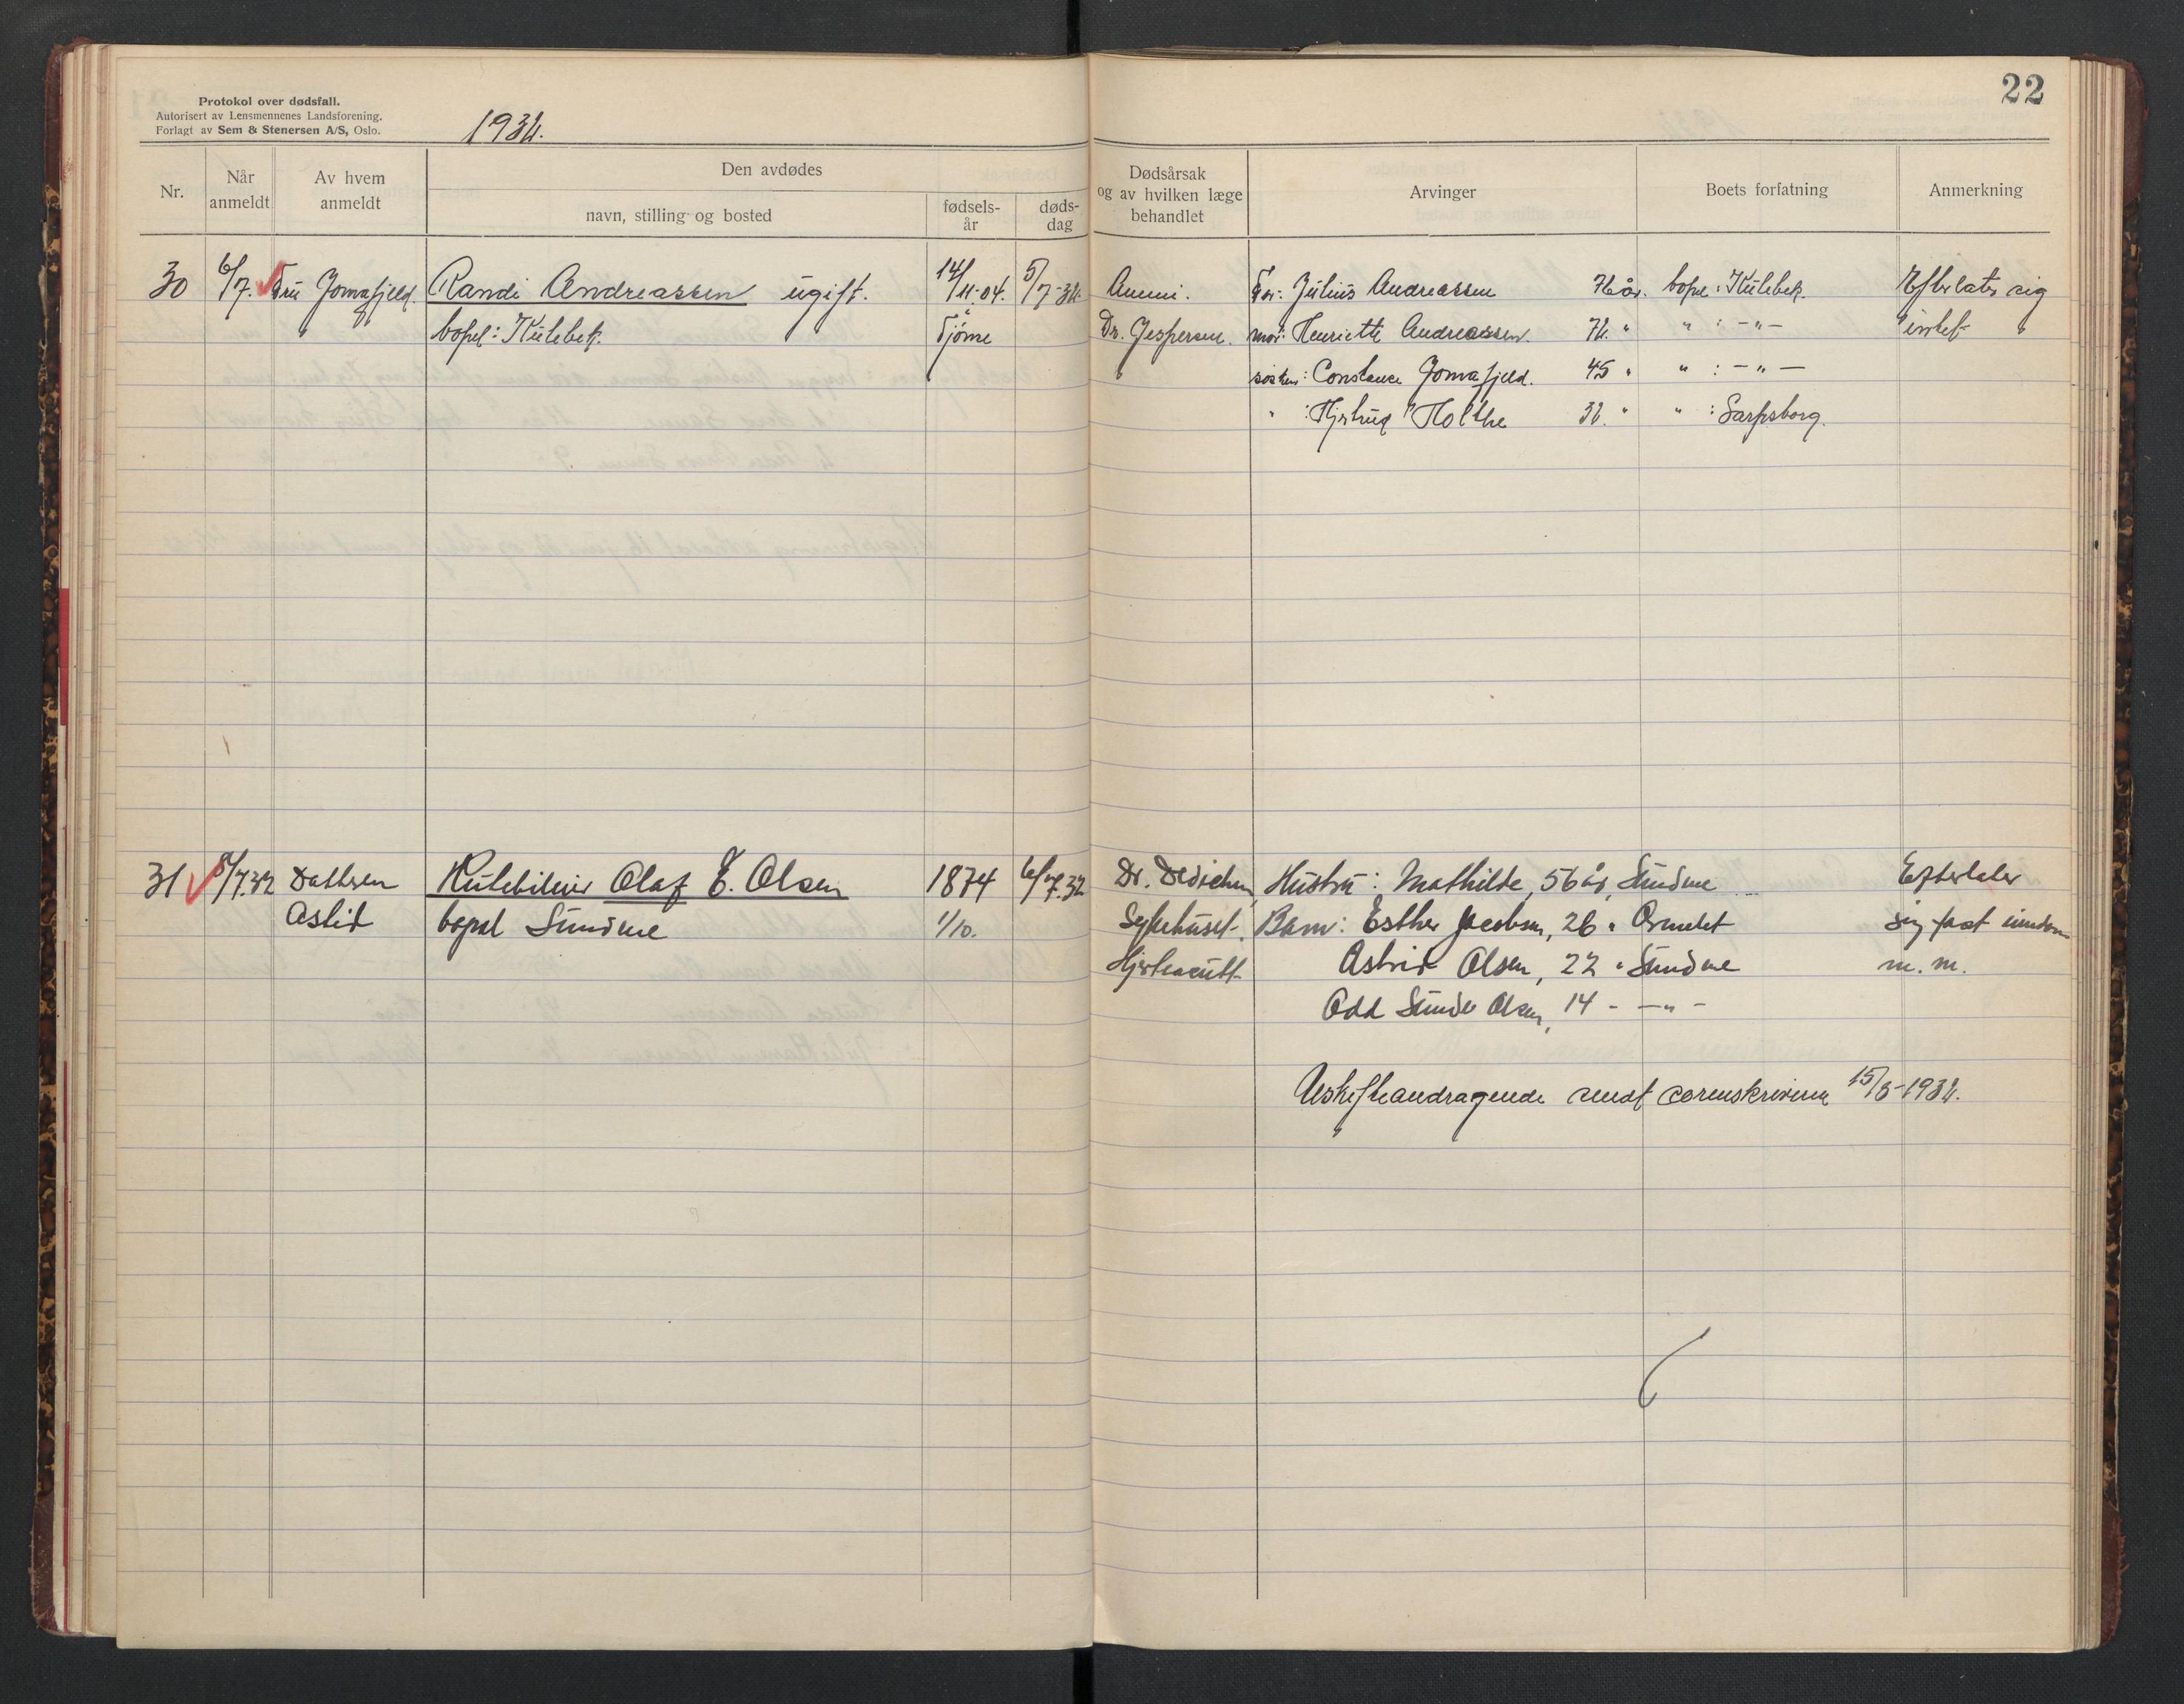 22
Protokol over dødsfall.
Autorisert av Lensmennenes Landsforening.
Forlagt av Sem & Stenersen A/S, Oslo.
1932.
Nr.
Når anmeldt
Av hvem anmeldt
Den avdødes
navn, stilling og bosted
fødsels-år
døds-dag
Dødsårsak og av hvilken læge behandlet
Arvinger
Boets forfatning
Anmerkning
30 6/7. Fru Jomafjeld. Randi Andreassen ugift. 14/11-04. 5/7-32. Anemi. Far: Julius Andreassen 76 år. bopæ: Kulebek. Efterlater sig
bopel: Kulebek. Tjöme Dr. Jespersen. mor: Henriette Andreassen. 72. " " : -"- intet
søsken: Constance Jomafjeld. 45 " " : -"-
" : Hjertrud Holthe 32. " " : Sarpsborg.
31 8/7.32 Datteren Olaf E. Olsen 1874 6/7.32 Dr. Dedichen, Hustru: Mathilde, 56 år, Sundene Efterlater
Astrid bopæl Sundene 1/10. Sykehuset. Barn: Esther Jacobsen, 26 " Ormelet sig fast eiendom
Astrid Olsen, 22 " Sundene m.m.
Odd Sunde Olsen, 14 - -"-
Uskifteandragende sendt sorenskriveren 15/8-1932.